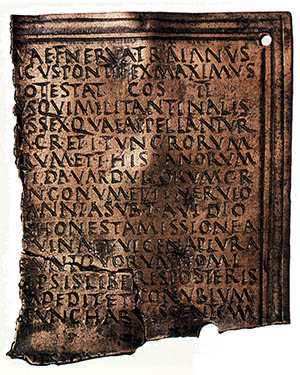 AEFNERVATRAIANVS
ICVSPONTIFEXMAXIMVS
OTESTAT COS II
SQVIMILITANTINALIS
SSEXQVAEAPPELLANTVR
ACRETITVNGRORVM
RVMETIHISPANORVM
IDAVARDVLLORVMCR
NGONVMETIINERVIO
ANNIASVBTAVIDIO
SHONESTAMISSIONEA
VINAETVICENAPLVRA
TQVORVMNOMI
IPSISLIBERISPOSTERIS
MDEDITETCONVBIVM
VNCHABVISSENTCVM